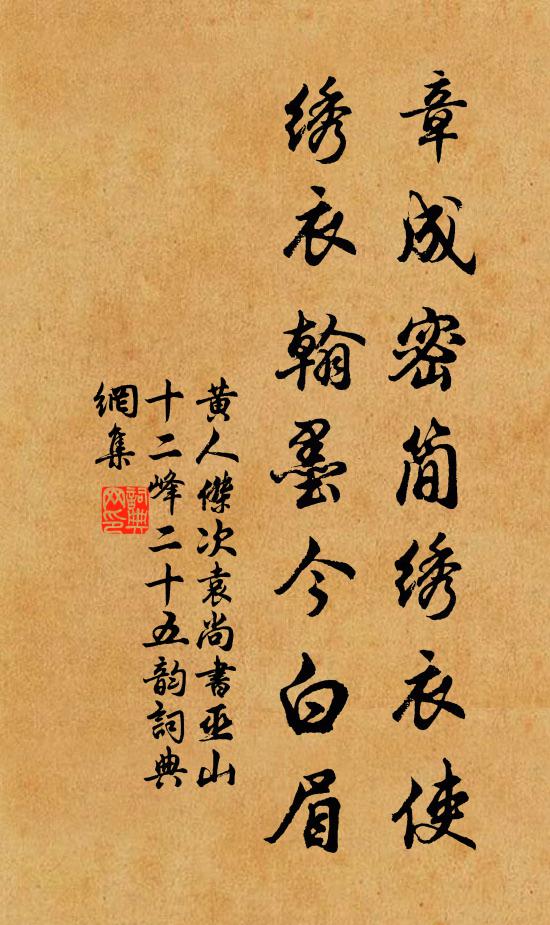 章成密简绣衣使
绣衣翰墨今白眉
黄人傑次袁尚書巫山
十二峰二十五韵詞典
網集
詞典網印